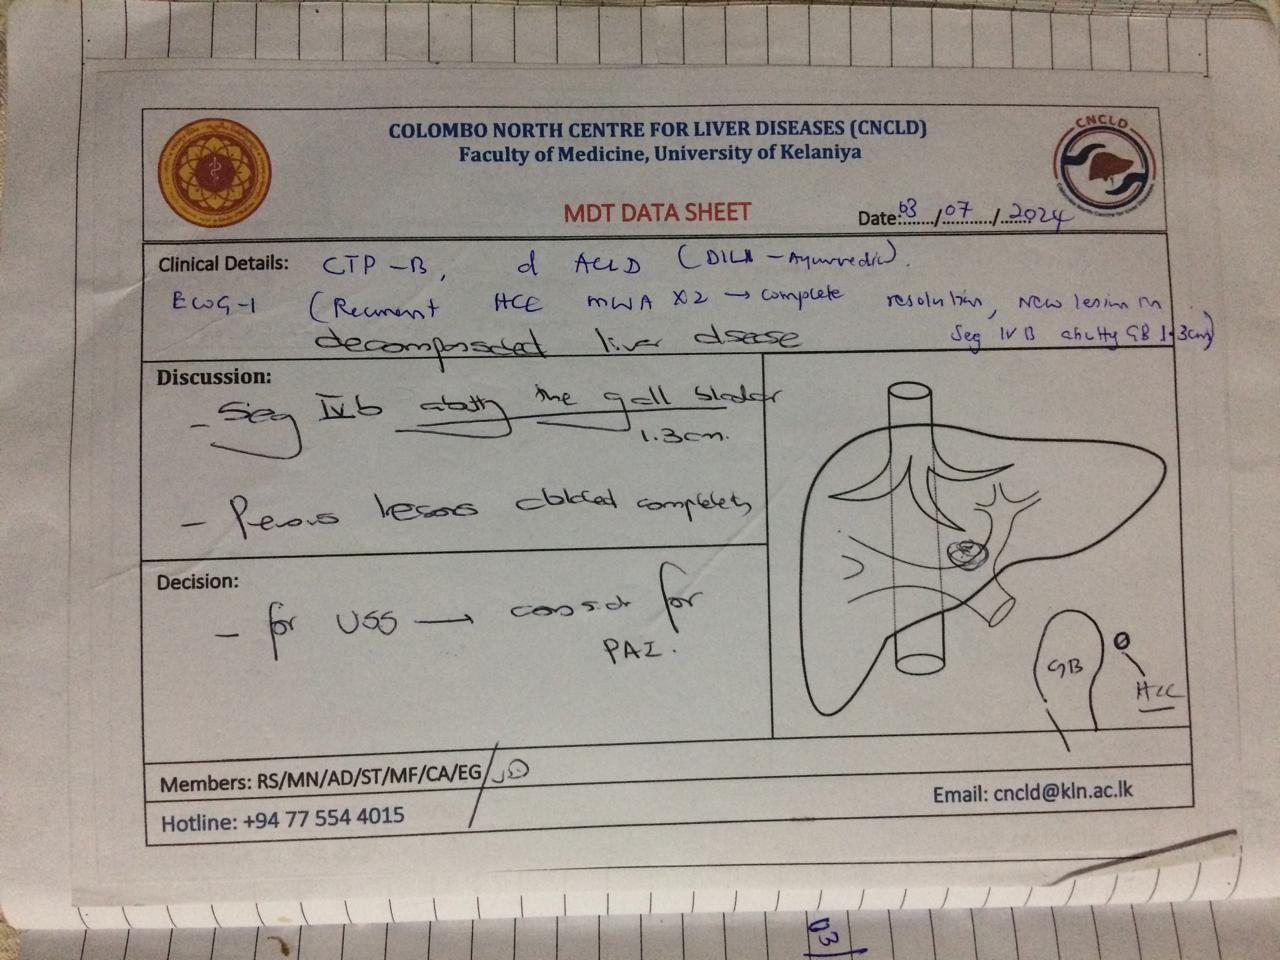 COLOMBO NORTH CENTRE FOR LIVER DISEASES (CNCLD)
Faculty of Medicine, University of Kelaniya
CNCLD
MDT DATA SHEET
Date: 03/07/2024
Clinical Details: CTP-B, d ACLD (DILI - Ayurvedic).
ECOG-1 (Recurrent HCC MWA X2 → complete resolution, New lesion in
Seg IVB abutty GB 1.3cm)
decompensated liver disease
Discussion:
- Seg IVb the gall bladder
1.3cm.
- lesions completely
Decision:
- for USS → for
PAI.
GB
HCC
Members: RS/MN/AD/ST/MF/CA/EG/
Hotline: +94 77 554 4015
Email: cncld@kln.ac.lk
03